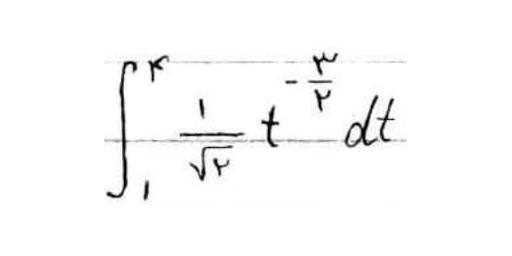 ∫₁^۴ ۱/√۲ t^(-۳/۲) dt